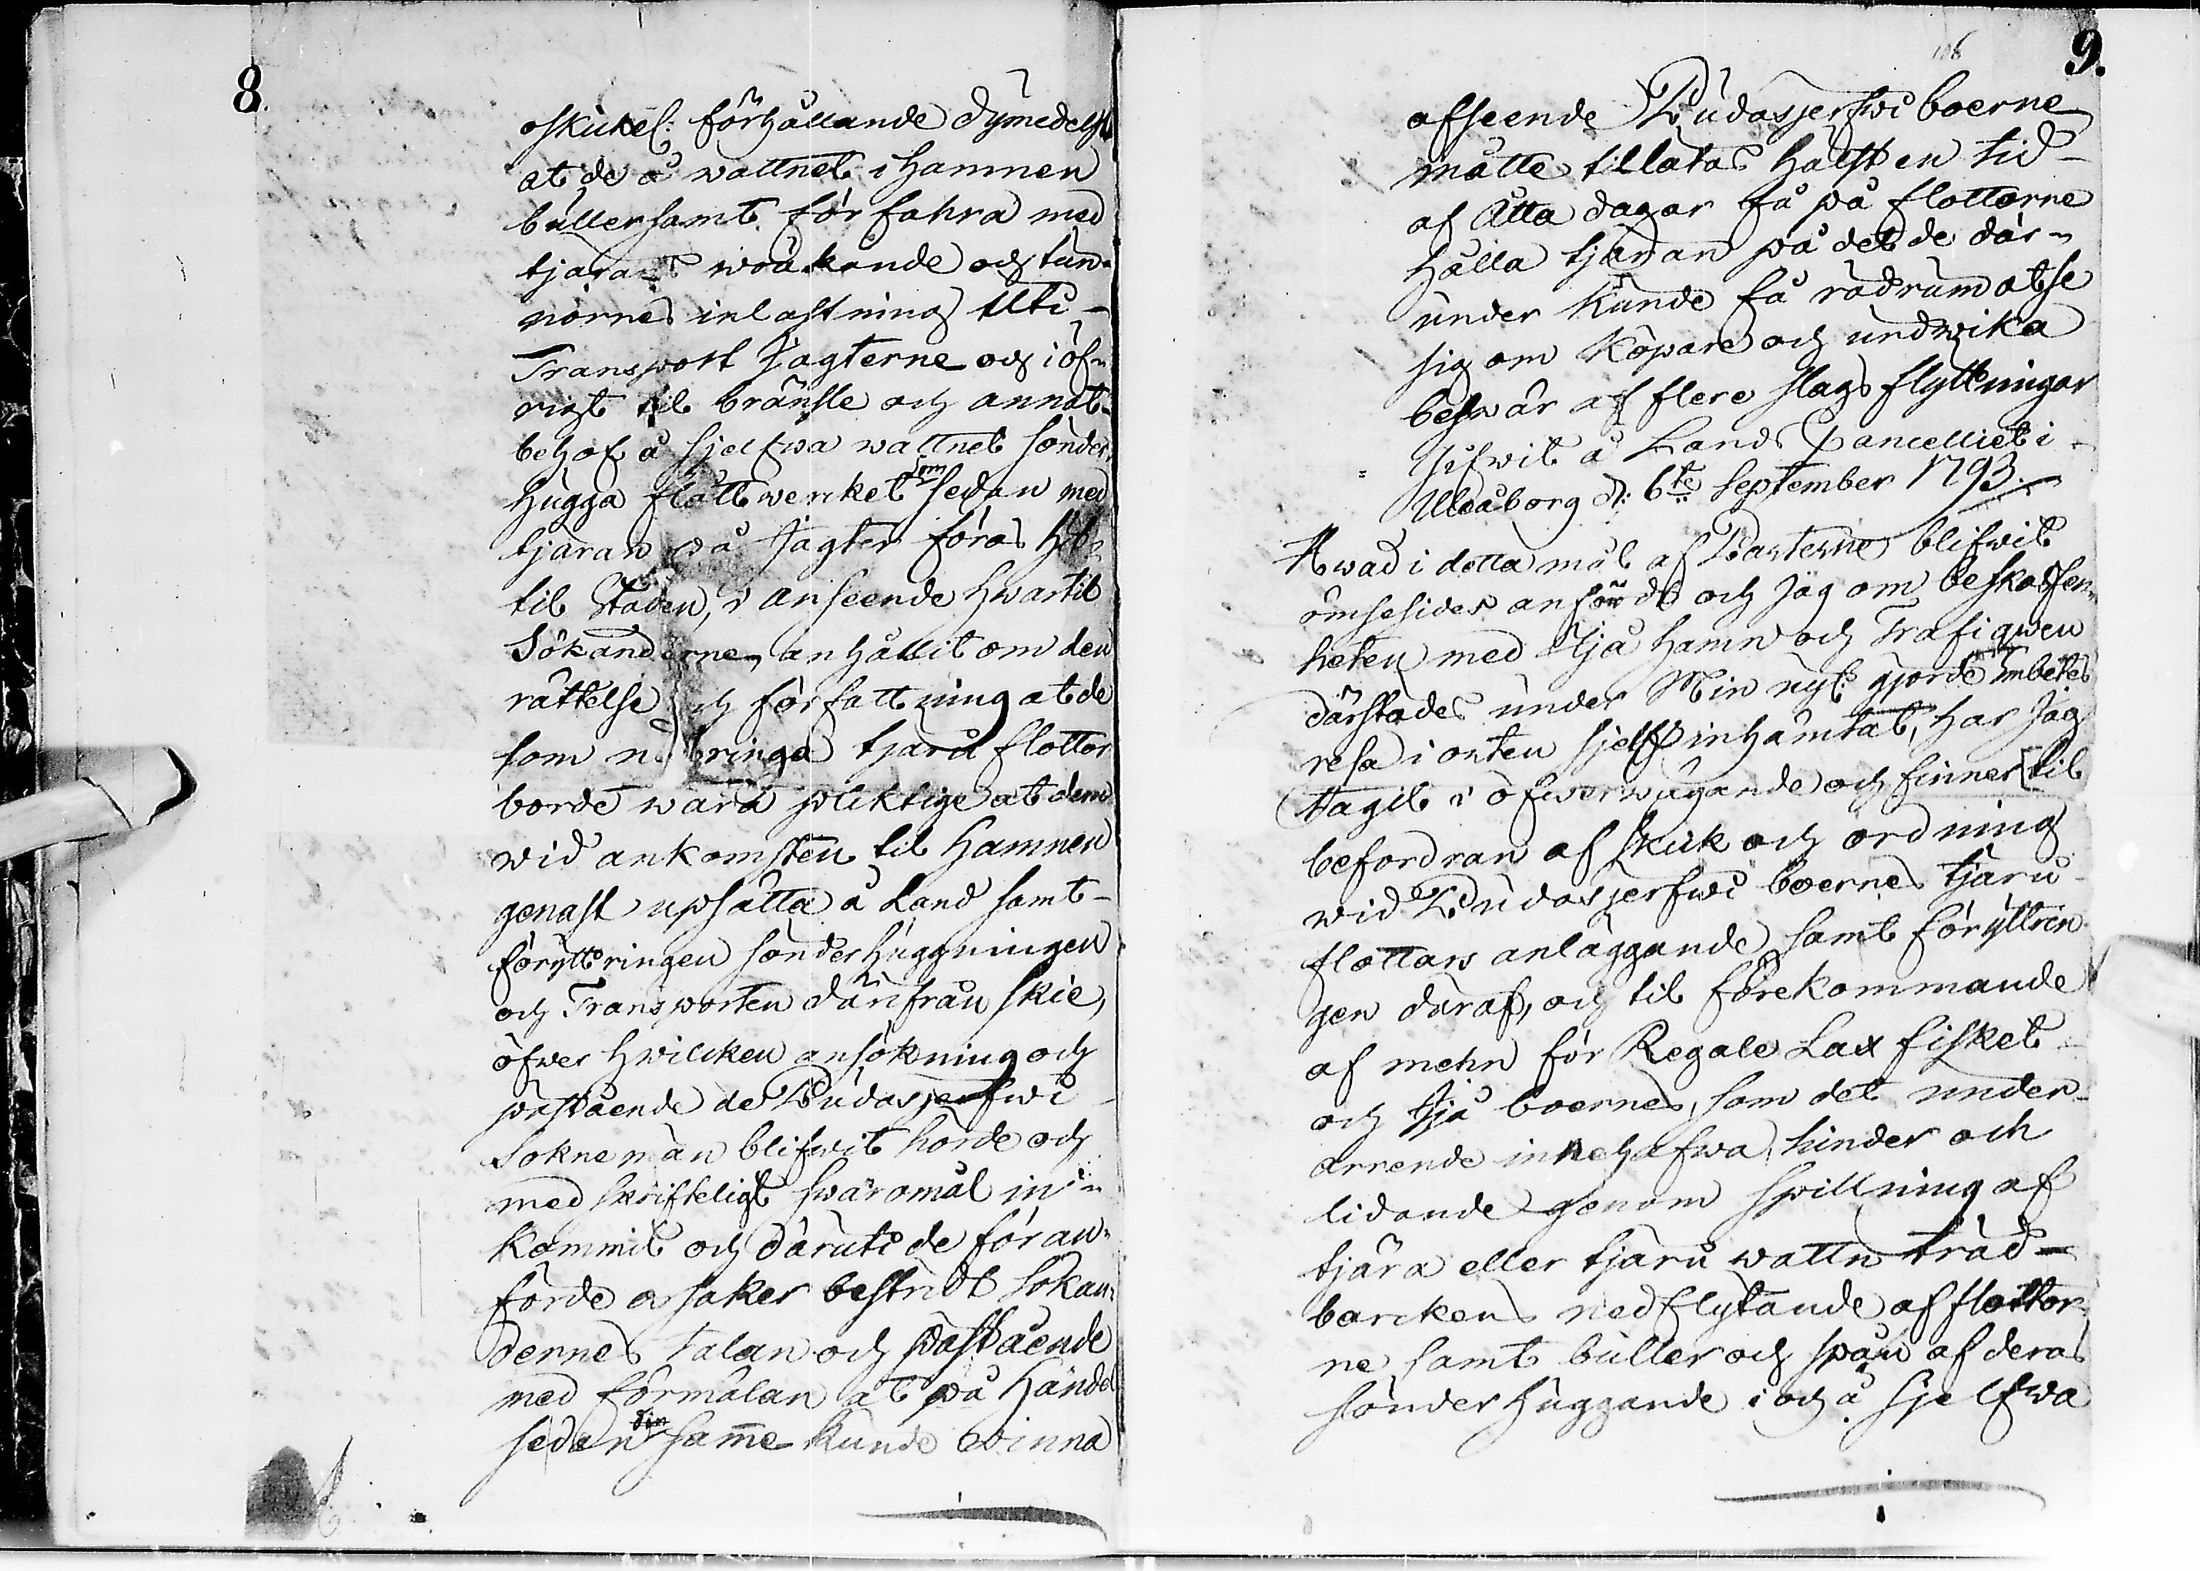 8.
oskickel: förhållande dymedelst
at de å wattnet i hamnen
bullersamt förfahra med
tjarans wräkande och tun-
nornes inlastning uti
Transport Jagterne och i öf-
rigt til bränsle och annat
behof å sjelfwa wattnet sönder-
hugga flåttwercket som sedan med
tjaran på Jagter föras hit
til Staden, i anseende hwartil
Sökanderne, anhållit om den
rättelse och författning at de
som nedbringa tjaru flottor
borde wara pliktige at dem
wid ankomsten til Hamnen
genast upsätta å Land samt
föryttringen sönderhuggningen
och Transporten därifrån skie,
öfwer hwilcken ansökning och
påstående de Pudasjerfwi
Soknemän blifwit hörde och
med skrifteligt swaromål in-
kommit och däruti de för an-
förde orsaker bestridt sökan-
dernes talan och påstående
med förmälan at på händel
sedan samme kunde winna
9.
afseende Pudasjerfwi boerne
måtte tillåtas hälst en tid
af Åtta dagar få på flottorne
hålla tjäran på det de där-
under kunde få rådrum at se
sig om köpare och undwika
beswär af flere slags flyttningar
Gifwit å Lands Cancelliet i
Uleåborg d: 6te September 1793.
Hwad i detta mål af Parterne blifwit
ömsesides anfördt och Jag om beskaffen-
heten med Ijå hamn och Trafiqwen
därstädes under Min nyl: gjorde Embetes
resa i orten sjelf inhämtat, har Jag
tagit i öfwerwägande och finner til
befordran af skick och ordning
wid Pudasjerfwi boernes tjäru
flottars anläggande samt föryttrin
gen däraf, och til förekommande
af mehn för Regale Lax fisket
och Ijå boernes, som det under
arrende innehafwa, hinder och
lidande genom spillning af
tjära eller tjäru wattn träd
barckens nedflytande af flottor
ne samt buller och spån af deras
sönderhuggande i och å sjelfwa